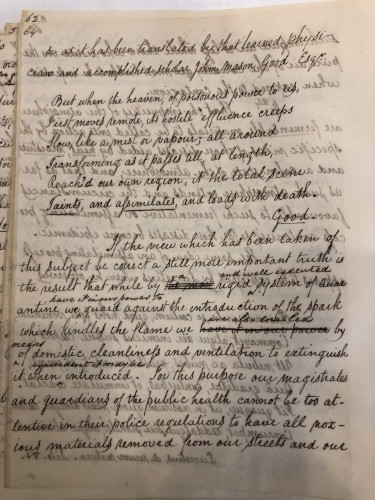 62
64
or as it has been translated by that learned physi-
cian and accomplished scholar John Mason Good, Esqr.
But when the heaven, of poisonous power to us,
First moves remote, its hostile effluence creeps
Slow, like a mist or vapour; all around
Transforming as it passes till, at length,
Reach'd our own region, it the total scene
Taints, and assimilates, and loads with death.
Good.
If the view which has been taken of
this subject be corect a still more important truth is
and well executed
the result that while by rigid system of quar
have it in our power to
antine we guard against the introduction of the spark
which kindles the flame we have it in our power by
means
of domestic cleanliness and ventilation to extinguish
it when introduced. For this purpose our magistrates
and guardians of the public health cannot be too at-
tentive in their police regulations to have all nox-
ious materials removed from our streets and our